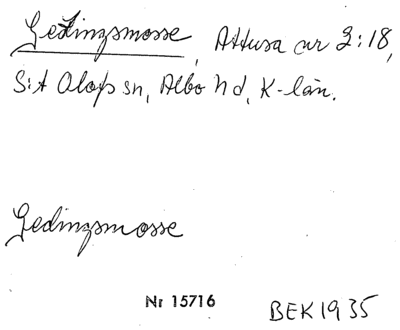 Gedingsmosse, Attusa cur 2:18,
S:t Olofs sn, Albo hd, K-län.
Gedingsmosse
Nr 15716 BEK1935